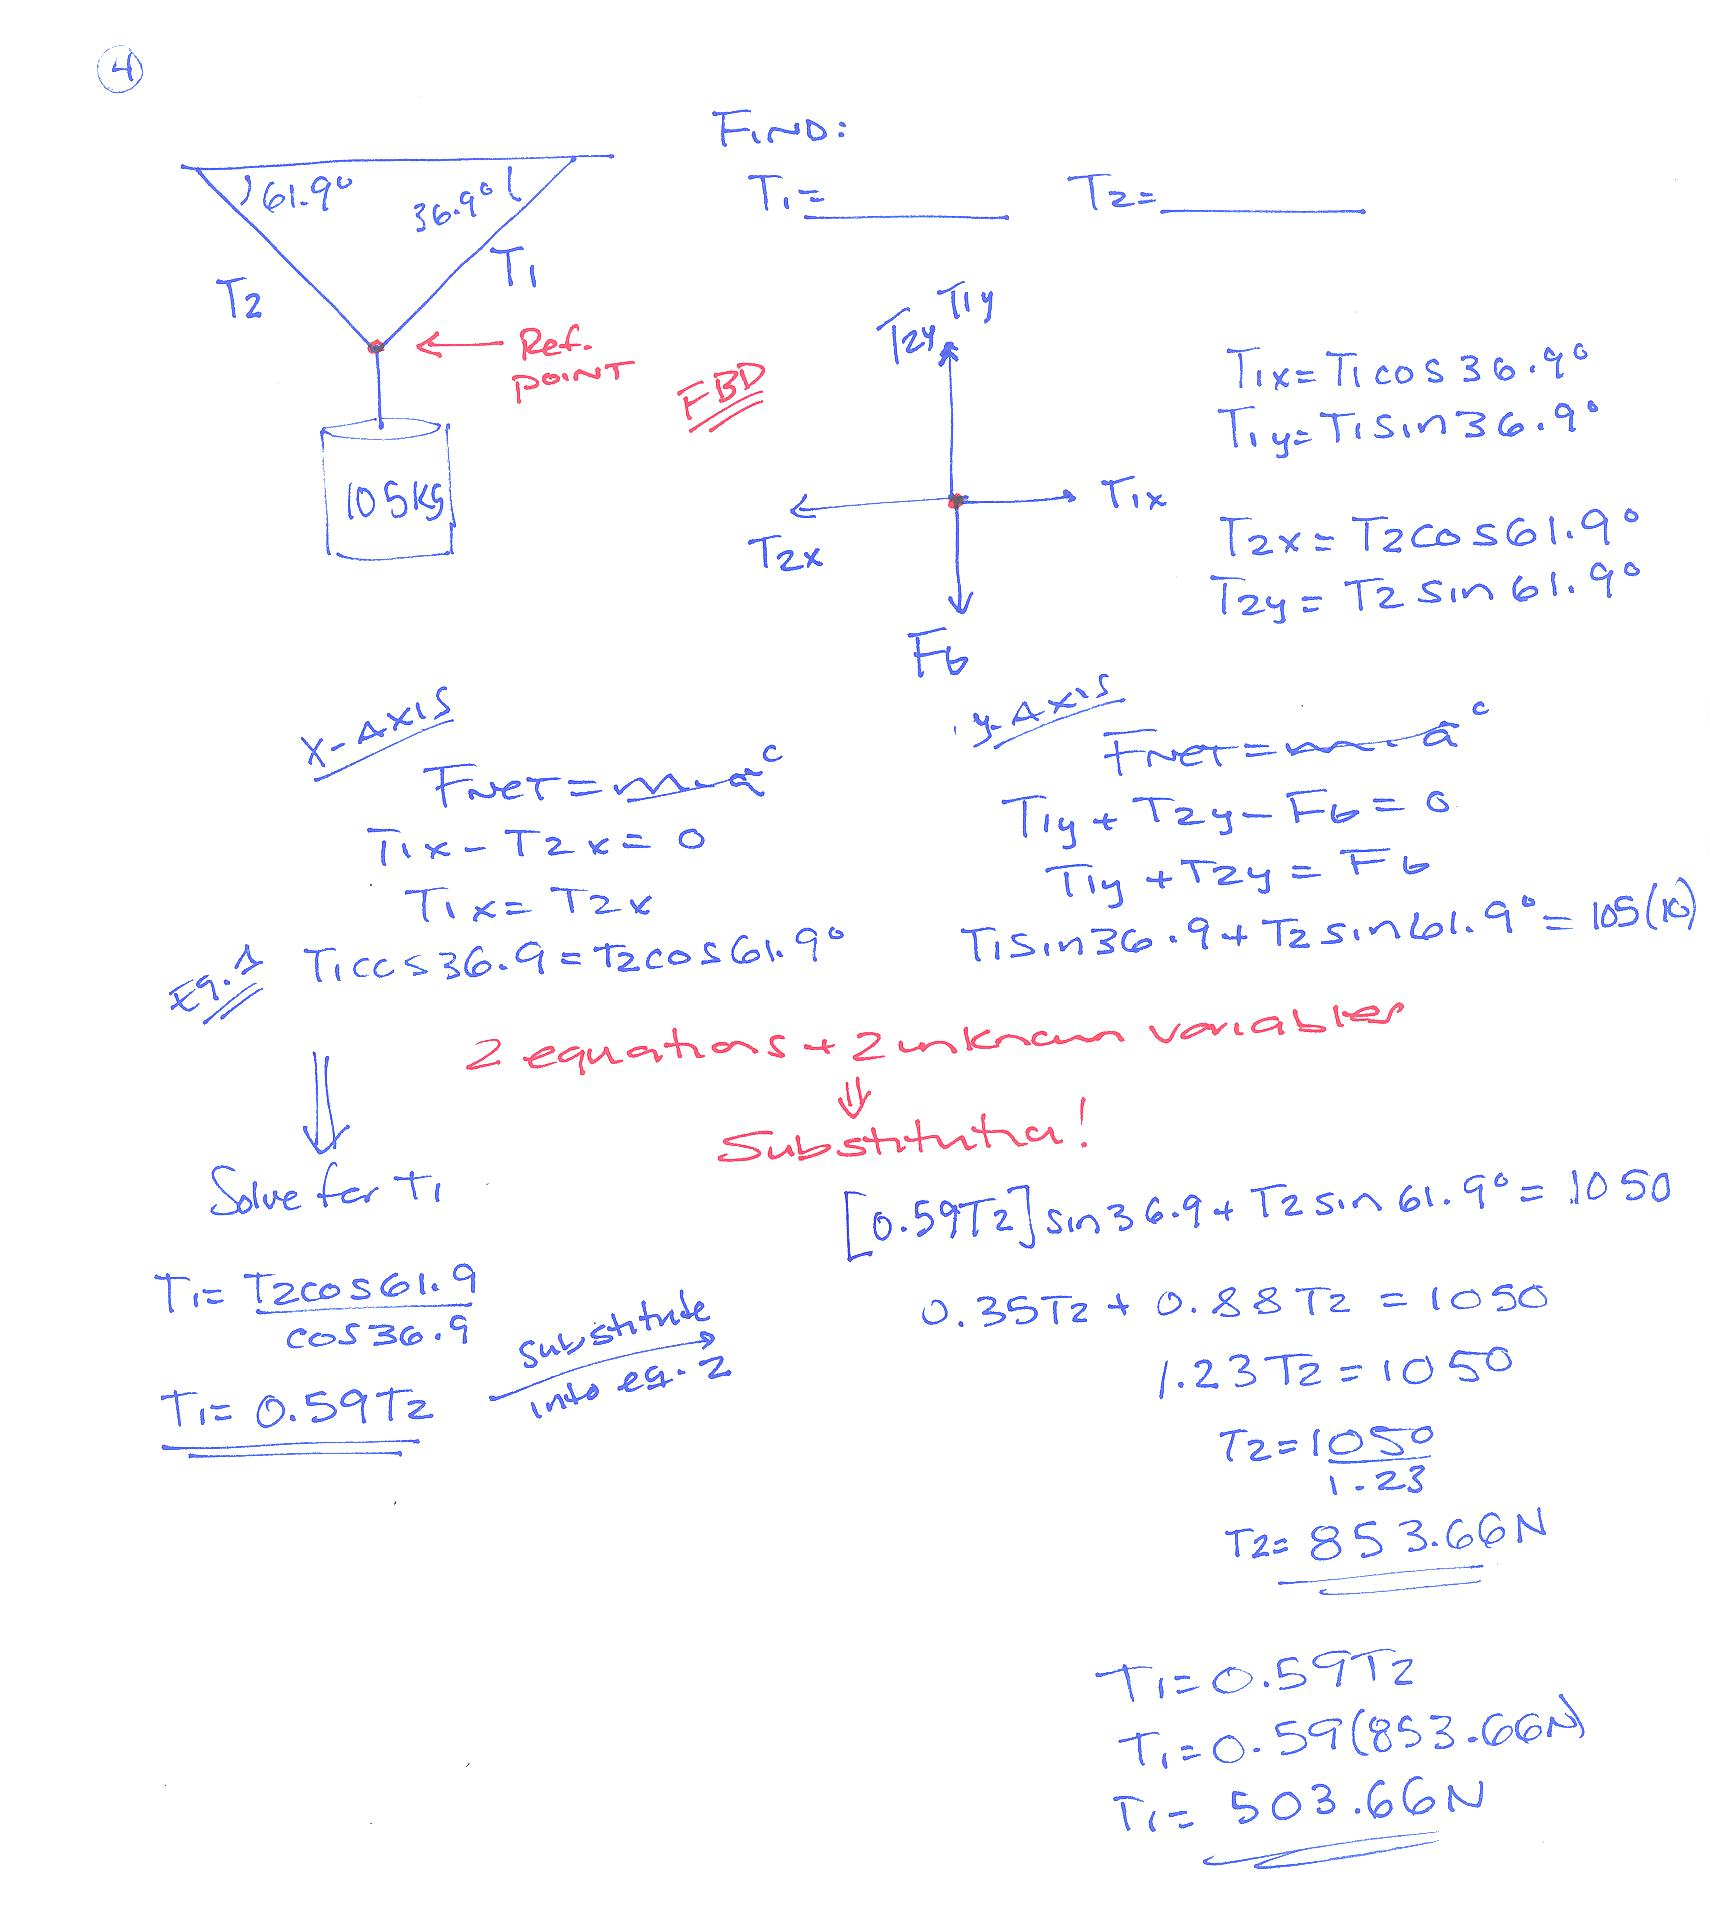 4
FIND:
T1= T2=
61.9° 36.9°
T2 T1
Ref.
POINT
105KG
FBD
T2y T1y
T1x
T2x
Fb
T1x= T1 cos 36.9°
T1y= T1 sin 36.9°
T2x= T2 cos 61.9°
T2y= T2 sin 61.9°
X-AXIS
FNET=m·a 0
T1x - T2x = 0
T1x= T2x
Eq. 1 T1cos36.9 = T2cos61.9°
y-AXIS
FNET=m·a 0
T1y + T2y - Fb = 0
T1y + T2y = Fb
T1sin36.9 + T2 sin 61.9° = 105(10)
2 equations + 2 unknown variables
⇓
Substitution!
Solve for T1
T1= T2cos61.9
cos36.9
T1= 0.59T2
substitute
into eq. 2
[0.59T2] sin36.9 + T2 sin 61.9° = 1050
0.35T2 + 0.88T2 = 1050
1.23T2 = 1050
T2= 1050
1.23
T2= 853.66N
T1= 0.59T2
T1= 0.59(853.66N)
T1= 503.66N